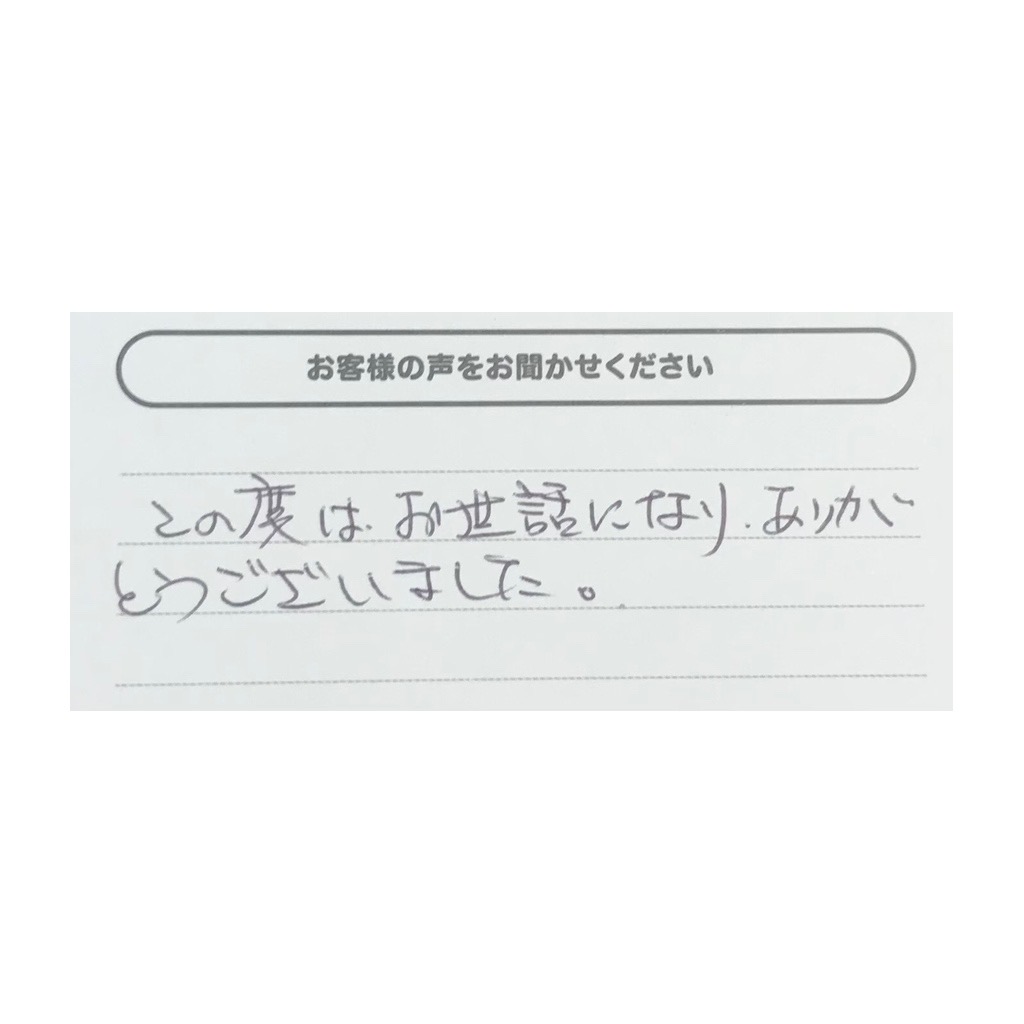 お客様の声をお聞かせください
この度は、お世話になり、ありが
とうございました。